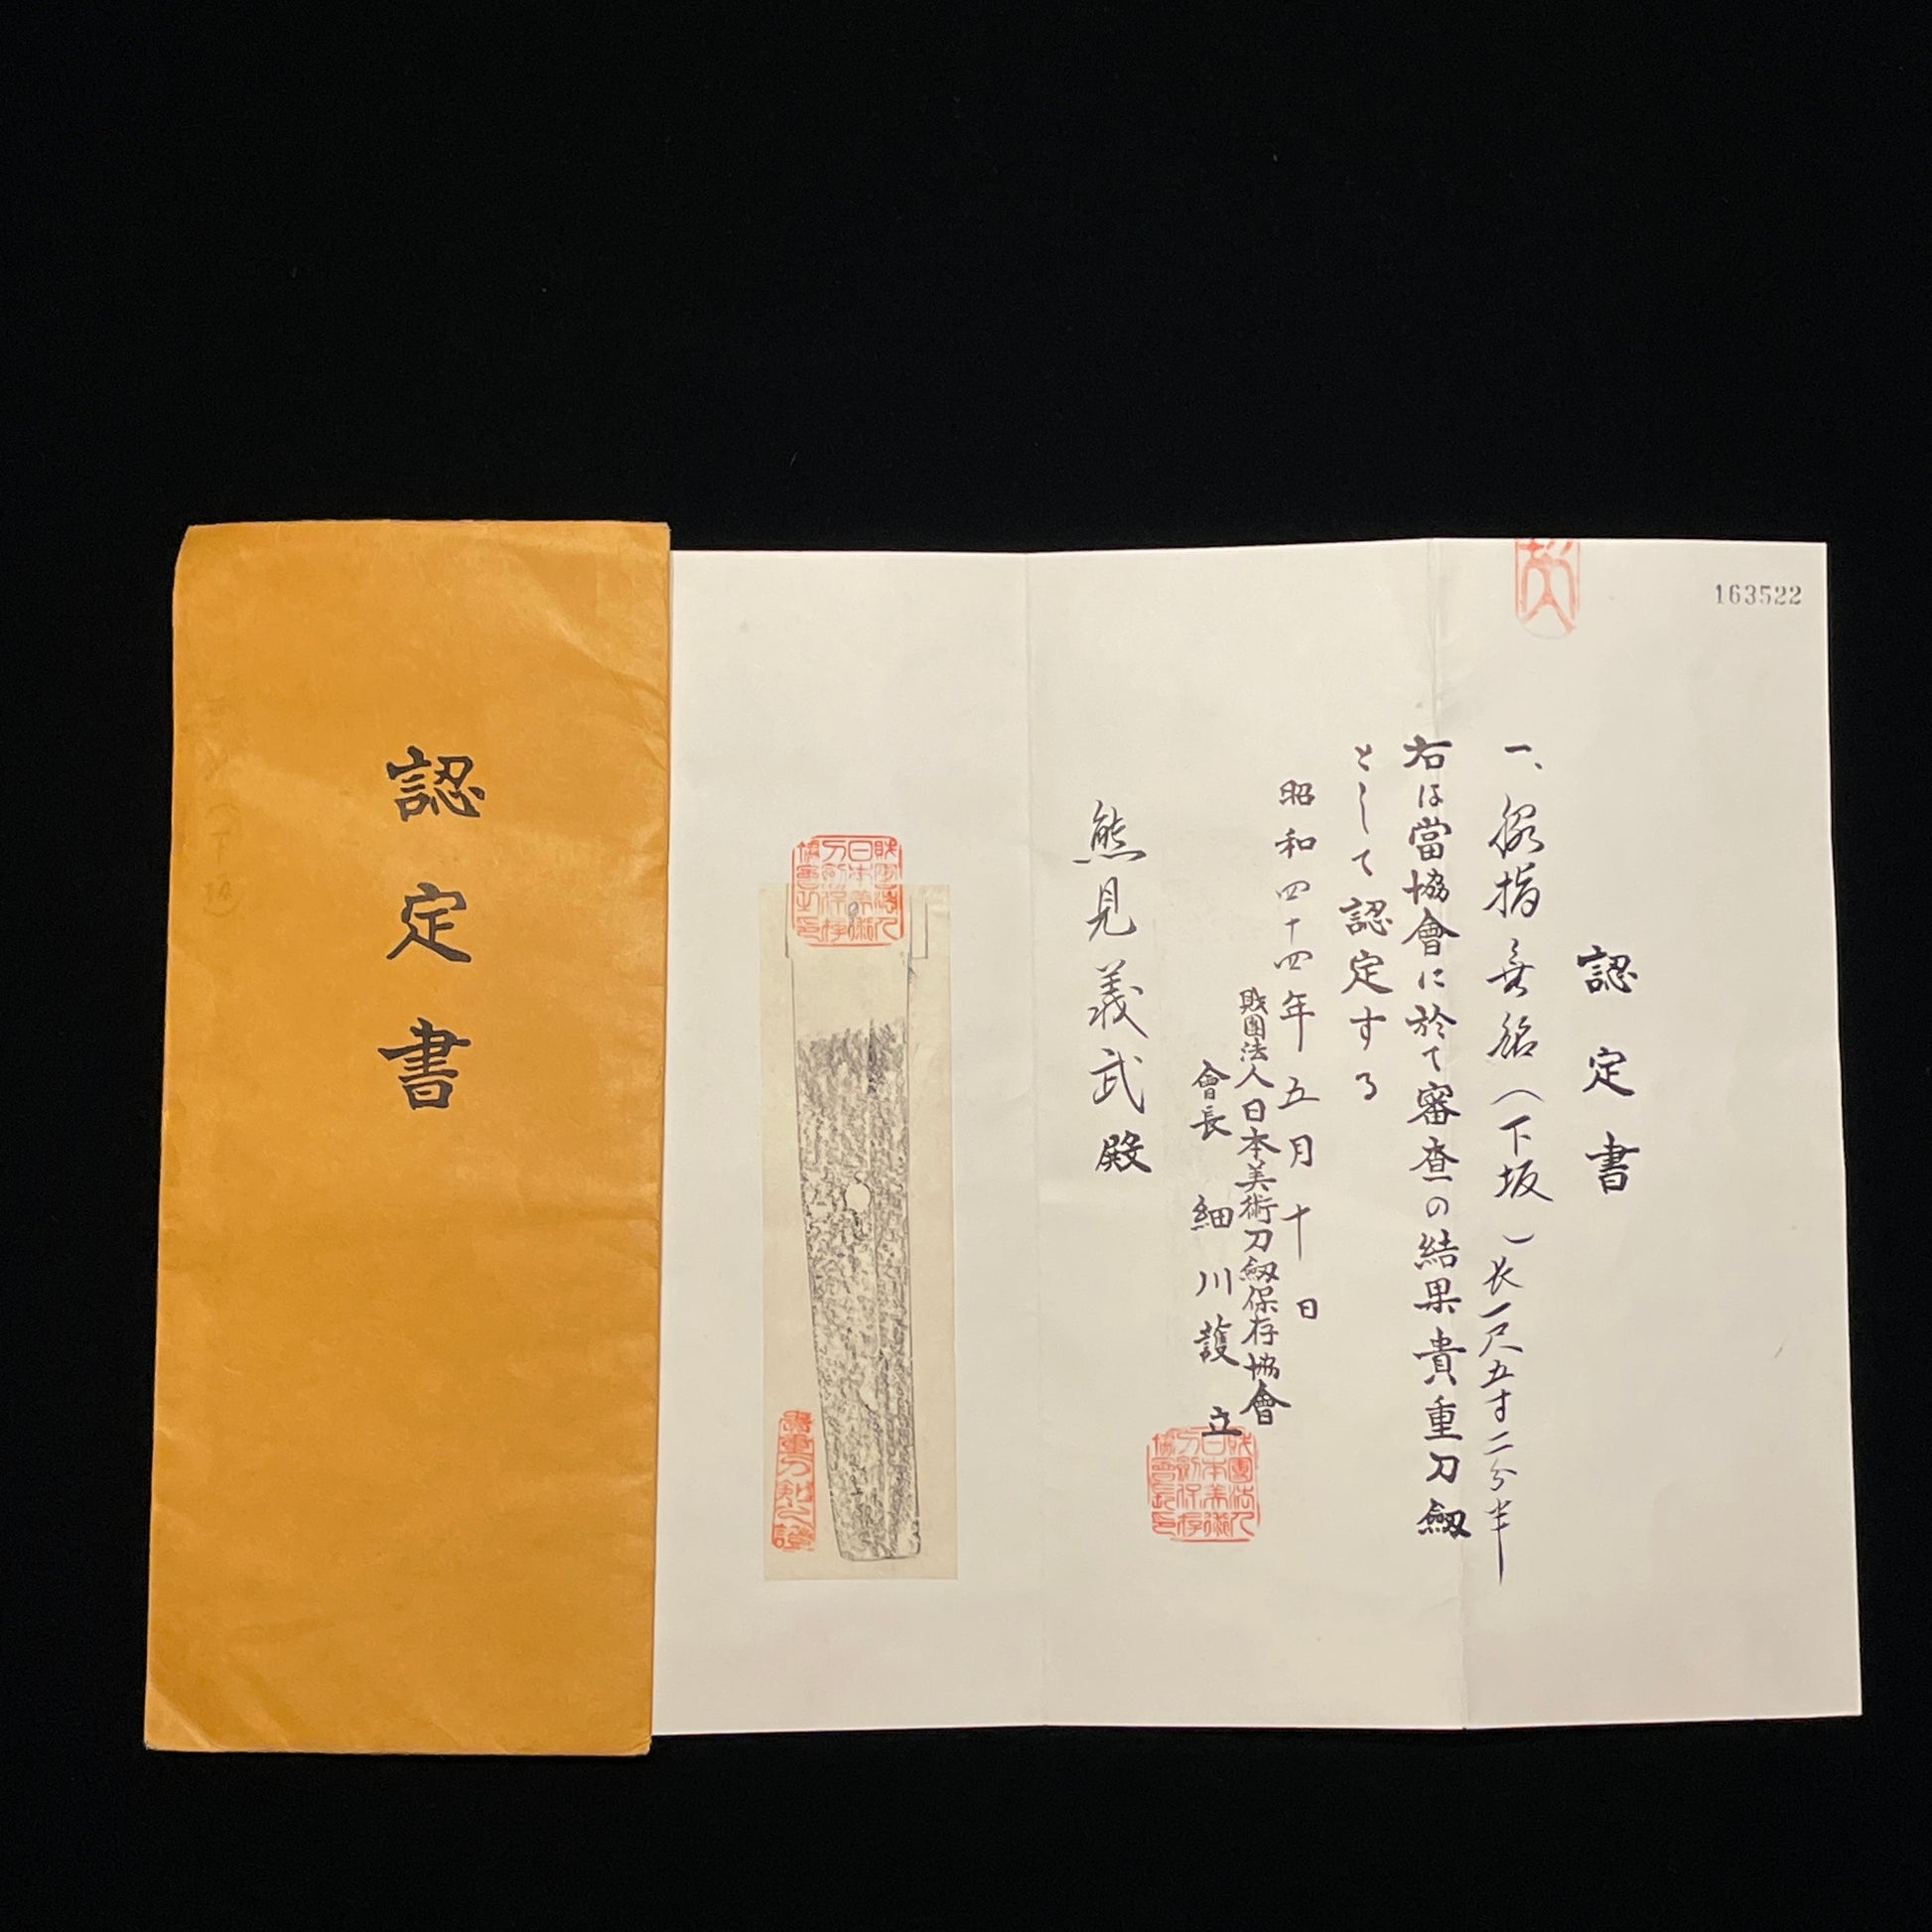 認定書
163522
認定書
一、脇指無銘（下坂）長一尺五寸二分半
右は當協會に於て審査の結果貴重刀劔
として認定する
昭和四十四年五月十日
財團法人日本美術刀劔保存協會
會長 細川護立
熊見義武殿
財團法人日本美術刀劍保存協會長印
財團法人日本美術刀劍保存協會之印
貴重刀剣之證
（下坂）